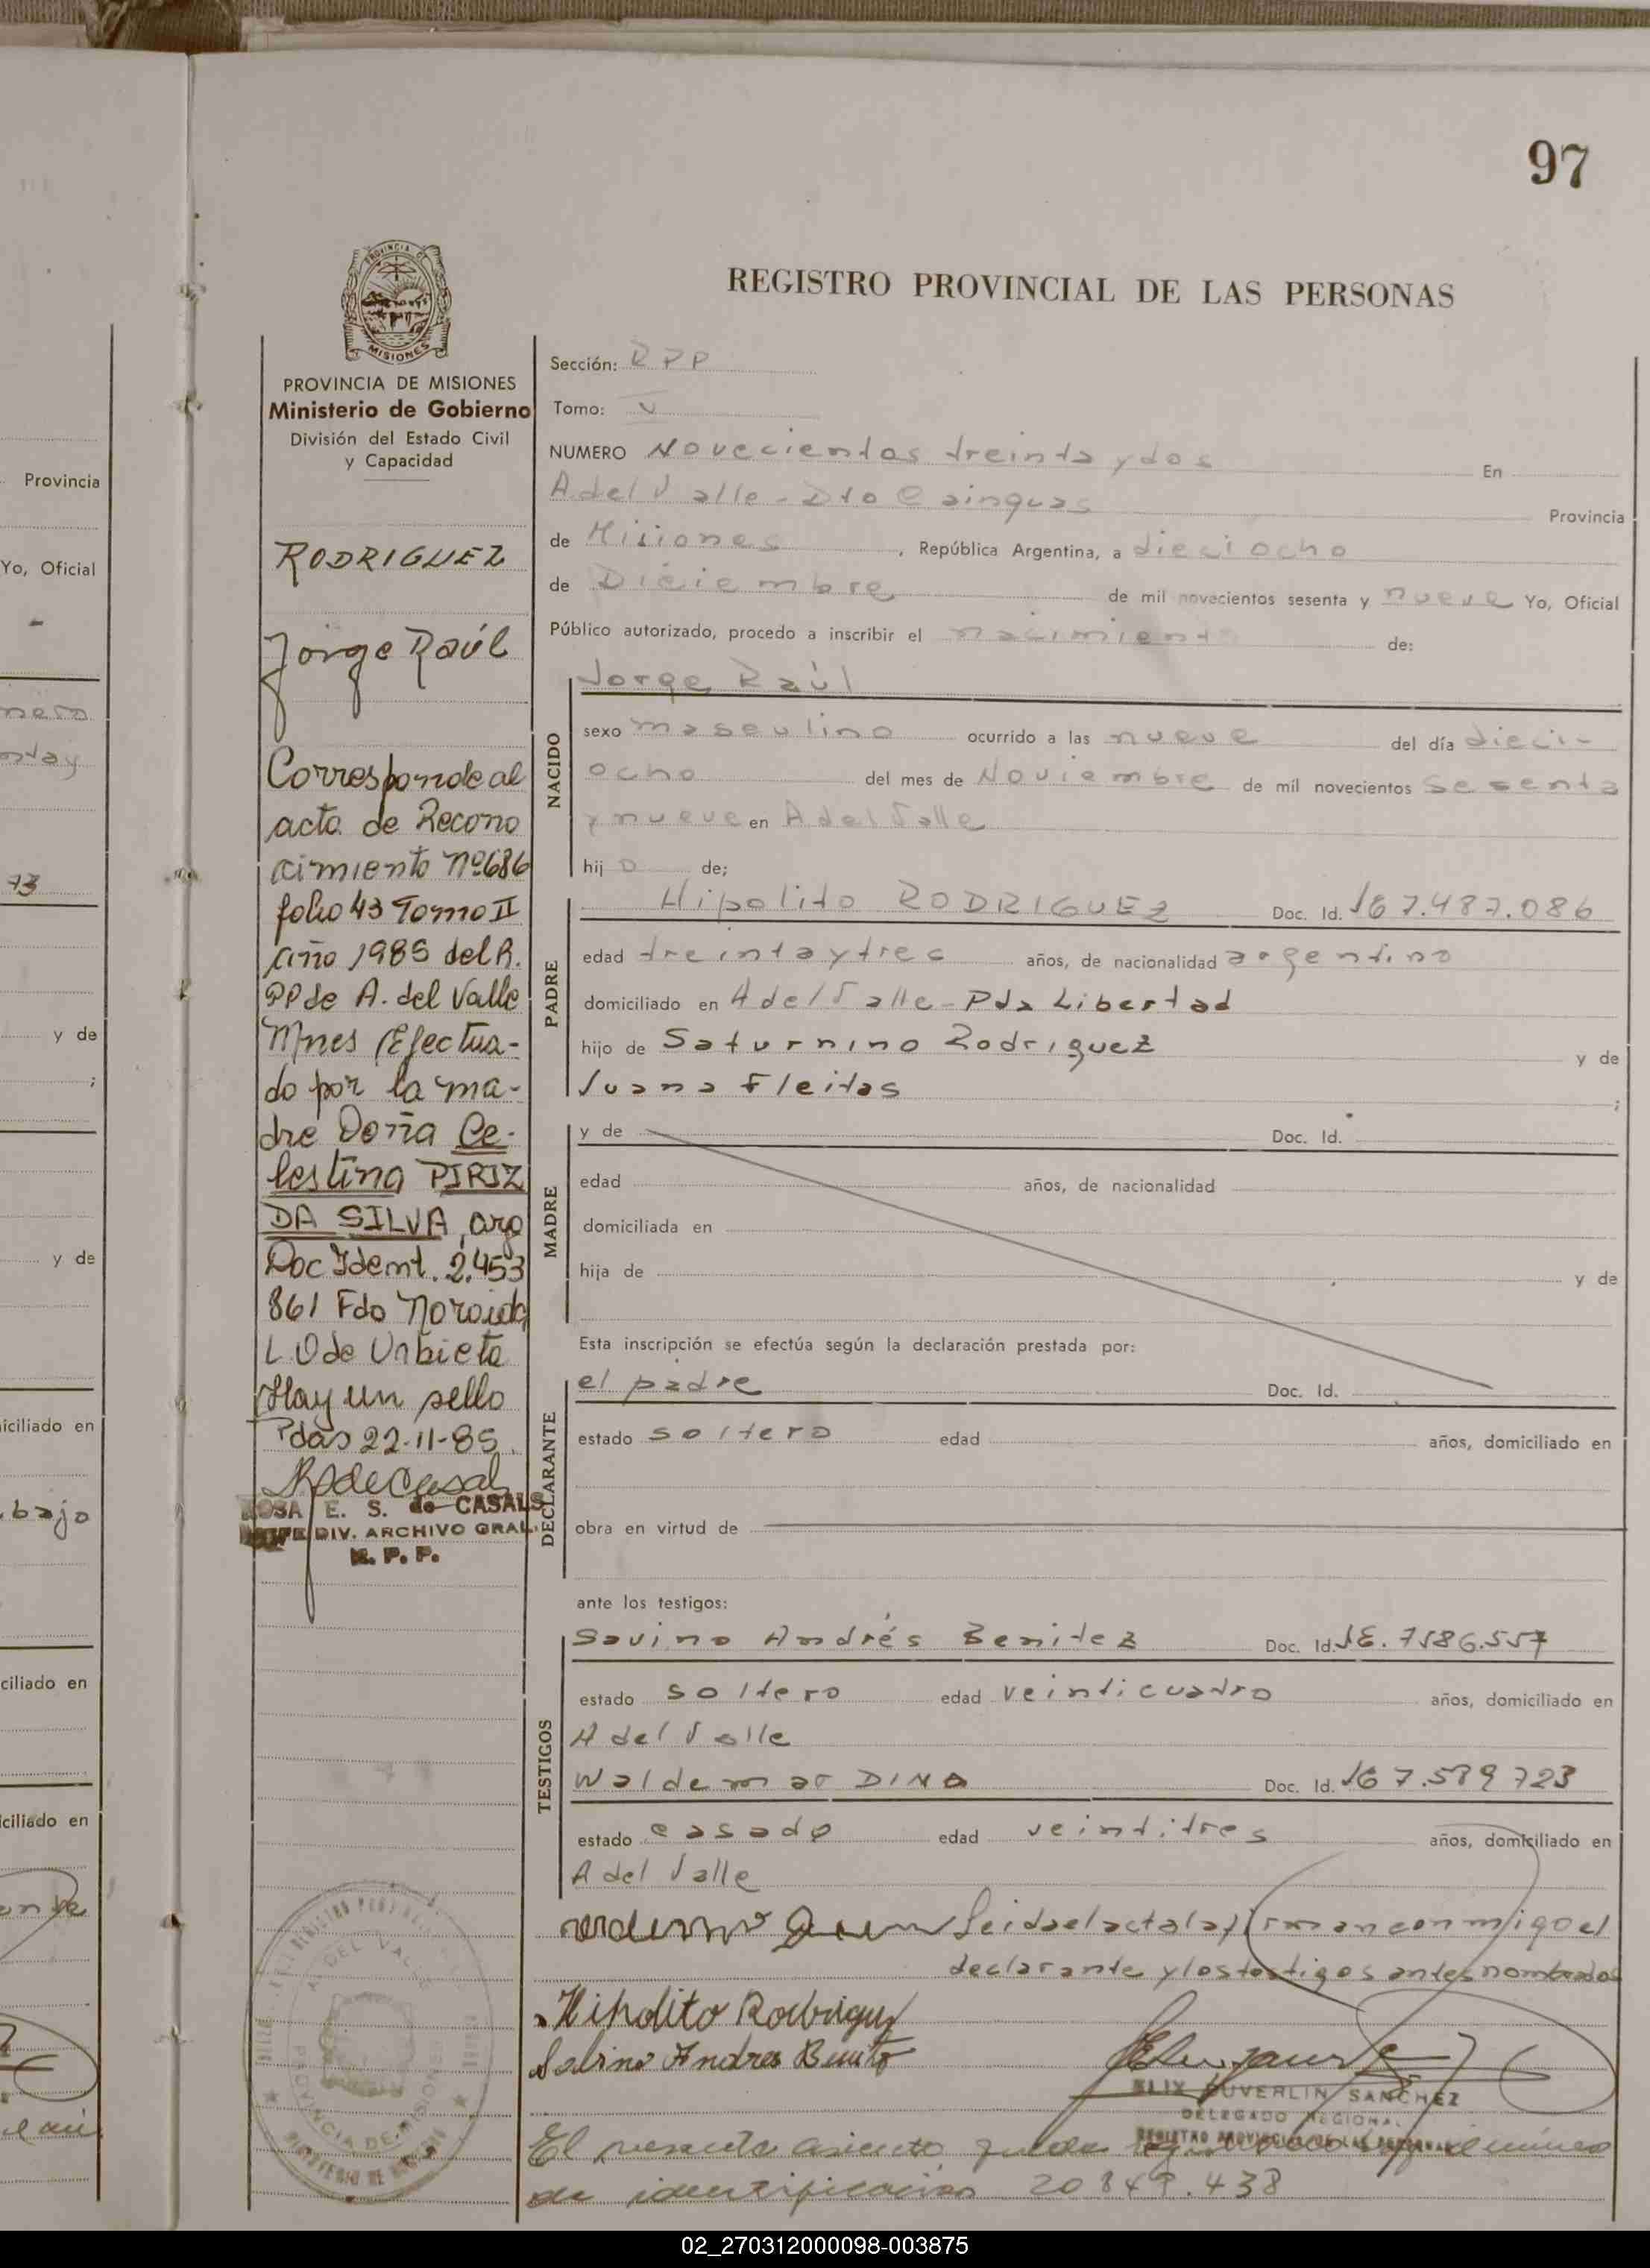 97
PROVINCIA DE
MISIONES
PROVINCIA DE MISIONES
Ministerio de Gobierno
División del Estado Civil
y Capacidad
RODRIGUEZ
Jorge Raúl
Corresponde al
acta de Recono
cimiento Nº686
folio 43 Tomo II
año 1985 del R.
PP de A. del Valle
Mnes (Efectua-
do por la ma-
dre Doña Ce-
lestina PIRIZ
DA SILVA, arg
Doc Ident. 2.453
861 Fdo
L. O de Urbieta
Hay un sello
Pdas 22-11-85.
ROSA E. S. de CASALS
JEFE DIV. ARCHIVO GRAL.
R. P. P.
REGISTRO PROVINCIAL DE LAS PERSONAS
Sección: RPP
Tomo: V
NUMERO Novecientos treinta y dos En
A del Valle - Dto Cainguas Provincia
de Misiones, República Argentina, a dieciocho
de Diciembre de mil novecientos sesenta y nueve Yo, Oficial
Público autorizado, procedo a inscribir el nacimiento de:
Jorge Raúl
NACIDO
sexo masculino ocurrido a las nueve del día dieci-
ocho del mes de Noviembre de mil novecientos sesenta
y nueve en A del Valle
hijo de;
PADRE
Hipolito RODRIGUEZ Doc. Id. 7.487.086
edad treinta y tres años, de nacionalidad argentino
domiciliado en A del Valle - Pda Libertad
hijo de Saturnino Rodriguez y de
Juana Fleitas ;
MADRE
y de Doc. Id.
edad años, de nacionalidad
domiciliada en
hija de y de
Esta inscripción se efectúa según la declaración prestada por:
DECLARANTE
el padre Doc. Id.
estado soltero edad años, domiciliado en
obra en virtud de
ante los testigos:
TESTIGOS
Savino Andrés Benitez Doc. Id. 7586.557
estado soltero edad veinticuatro años, domiciliado en
A del Valle
Waldemar Doc. Id.
estado casado edad veintitres años, domiciliado en
A del Valle
Leida el acta la firman conmigo el
declarante y los testigos antes nombrados
Hipolito Rodriguez
Sabino Andres Benito
DUVERLIN SANCHEZ
DELEGADO REGIONAL
REGISTRO PROVINCIAL DE LAS PERSONAS
A. DEL VALLE
PROVINCIA DE MISIONES
El presente asiento queda numero
de identificacion 20.849.438
Provincia
Yo, Oficial
73
y de
;
y de
iciliado en
bajo
ciliado en
ciliado en
02_270312000098-003875